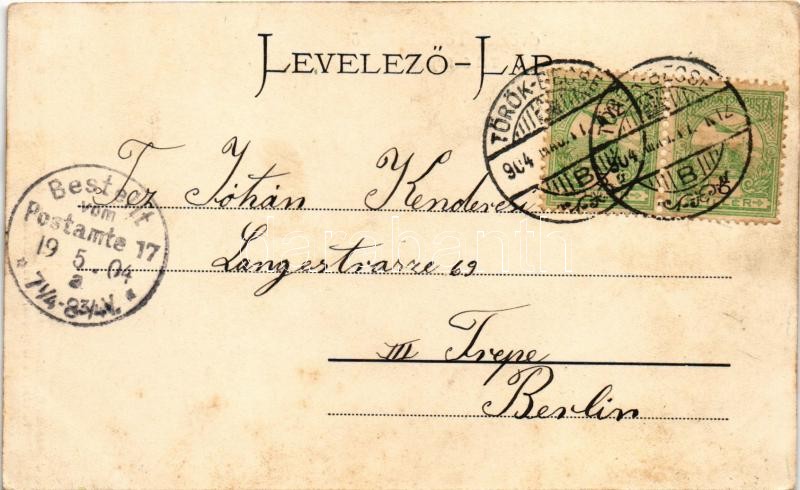 LEVELEZŐ-LAP
TÖRÖK-BECSE
904 MÁJ. 17.
B
Bestellt
vom
Postamte 17
19 5. 04
a
7¼-8¾V.
Tez Jóhán Kenderesi
Langestrasze 69
III Trepe
Berlin